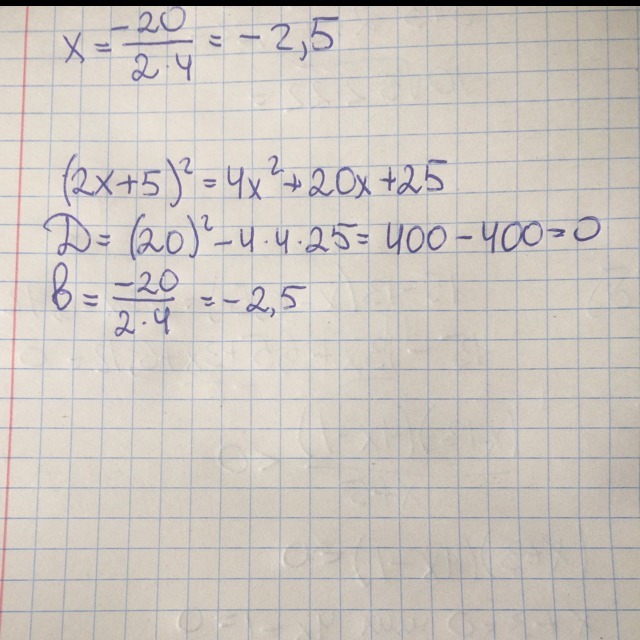 x = -20 / 2·4 = -2,5
(2x+5)² = 4x² + 20x + 25
D = (20)² - 4·4·25 = 400 - 400 = 0
в = -20 / 2·4 = -2,5